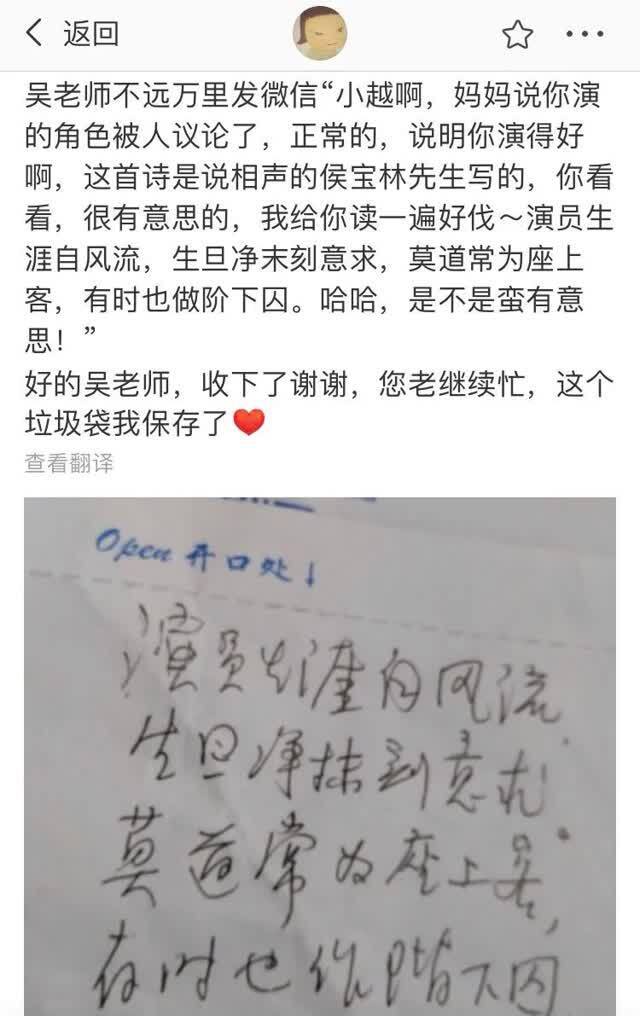 返回
吴老师不远万里发微信“小越啊，妈妈说你演
的角色被人议论了，正常的，说明你演得好
啊，这首诗是说相声的侯宝林先生写的，你看
看，很有意思的，我给你读一遍好伐～演员生
涯自风流，生旦净末刻意求，莫道常为座上
客，有时也做阶下囚。哈哈，是不是蛮有意
思！”
好的吴老师，收下了谢谢，您老继续忙，这个
垃圾袋我保存了❤️
查看翻译
Open 开口处↓
演员生涯自风流
生旦净抹刻意求
莫道常为座上客，
有时也作阶下囚